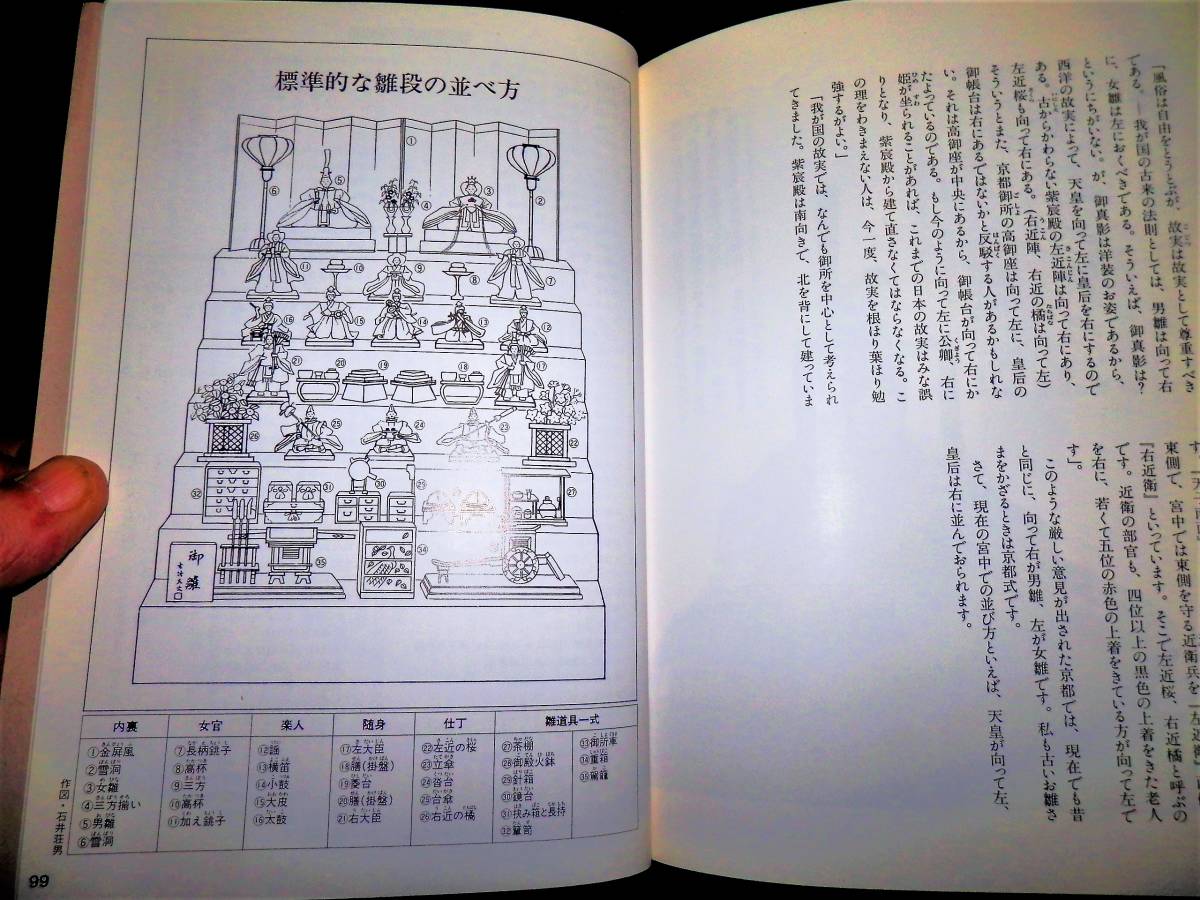 標準的な雛段の並べ方
①
⑤
③
⑥
④
②
⑪
⑩
⑨
⑧
⑦
⑯
⑮
⑭
⑬
⑫
㉑
⑳
⑲
⑱
⑰
㉖
㉕
㉔
㉒
㉜
㉛
㉚
㉗
㉟
㉞
御雛
内裏
①金屏風
②雪洞
③女雛
④三方揃い
⑤男雛
⑥雪洞
女官
⑦長柄銚子
⑧高杯
⑨三方
⑩高杯
⑪加え銚子
楽人
⑫謡
⑬横笛
⑭小鼓
⑮大皮
⑯太鼓
随身
⑰左大臣
⑱膳(掛盤)
⑲菱台
⑳膳(掛盤)
㉑右大臣
仕丁
㉒左近の桜
㉓立傘
㉔沓台
㉕台傘
㉖右近の橘
雛道具一式
㉗茶棚
㉘御殿火鉢
㉙針箱
㉚鏡台
㉛挟み箱と長持
㉜簞笥
㉝御所車
㉞重箱
㉟駕籠
作図・石井荘男
99
「風俗は自由をとうとぶが、故実は故実として尊重すべき
である。―我が国の古来の法則としては、男雛は向って右
に、女雛は左におくべきである。そういえば、御真影は?
というにちがいない。が、御真影は洋装のお姿であるから、
西洋の故実によって、天皇を向って左に皇后を右にするので
ある。古からかわらない紫宸殿の左近陣は向って右にあり、
左近桜も向って右にある。(右近陣、右近の橘は向って左)
そういうとまた、京都御所の高御座は向って左に、皇后の
御帳台は右にあるではないかと反駁する人があるかもしれな
い。それは高御座が中央にあるから、御帳台が向って右にか
たよっているのである。もし今のように向って左に公卿、右に
姫が坐られることがあれば、これまでの日本の故実はみな誤
りとなり、紫宸殿から建て直さなくてはならなくなる。こ
の理をわきまえない人は、今一度、故実を根はり葉ほり勉
強するがよい。」
「我が国の故実では、なんでも御所を中心として考えられ
てきました。紫宸殿は南向きで、北を背にして建っていま
東側で、宮中では東側を守る近衛兵を「左近衛」
『右近衛』といっています。そこで左近桜、右近橘と呼ぶの
です。近衛の部官も、四位以上の黒色の上着をきた老人
を右に、若くて五位の赤色の上着をきている方が向って左で
す」。
このような厳しい意見が出された京都では、現在でも昔
と同じに、向って右が男雛、左が女雛です。私も古いお雛さ
まをかざるときは京都式です。
さて、現在の宮中での並び方といえば、天皇が向って左、
皇后は右に並んでおられます。